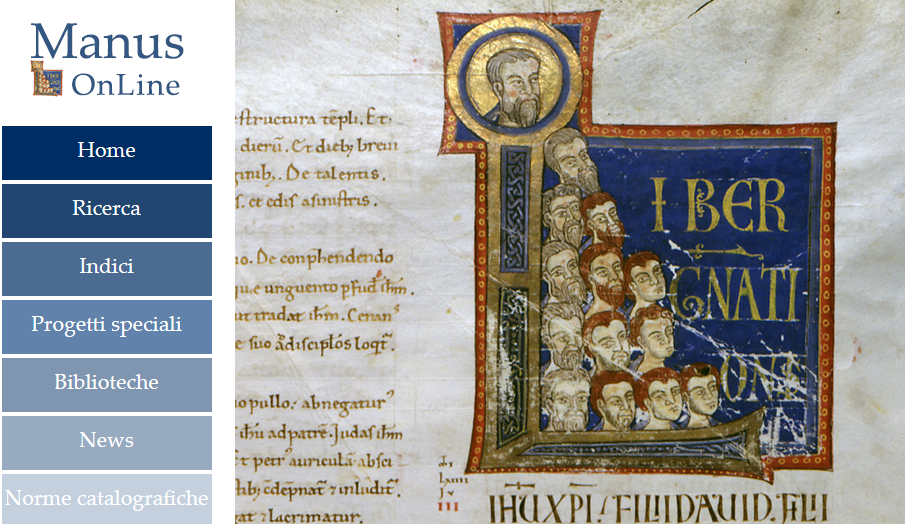 Manus
OnLine
Home
Ricerca
Indici
Progetti speciali
Biblioteche
News
Norme catalografiche
structura tēpli. Et
dierū. Et dieb; breui
De talentis.
et edis a sinistris.
De conphendendo
que unguento pfud ihm.
ut tradat ihm. Cenanˢ
e suo Adisciplōs loqt̄.
o pullo: abnegatur
ihū ad patrē. Judas ihm
et petrˢ auriculā absci
gat ⁊ lacrimatur.
IBER
GNATI
ONI
IHU XPI. FILII DAUID. FILII